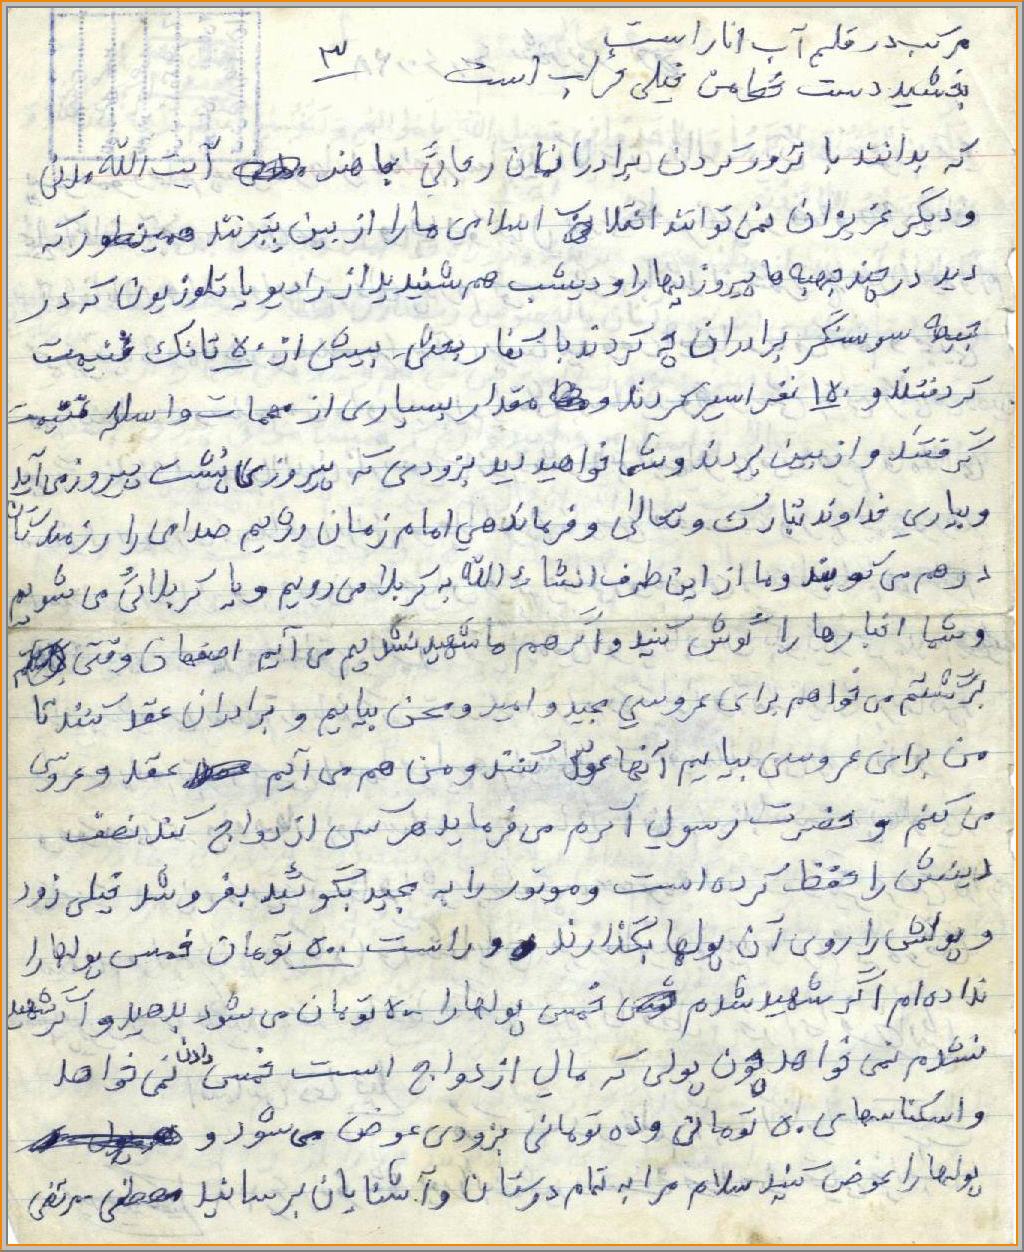 مرکب در قلم آب انار است
ببخشید دست خط من خیلی خراب است
۳
که بدانند با ترور کردن برادرانمان رجائی باهنر آیت الله مدنی
و دیگر عزیزان نمی توانند انقلاب اسلامی ما را از بین ببرند همینطور که
دید در چند جبهه ما پیروزیها را و دیشب هم شنیدید از رادیو یا تلوزیون که در
جبهه سوسنگرد برادران چه کردند با کفار بعثی بیش از ۵۰ تانک غنیمت
گرفتند و ۱۵۰ نفر اسیر کردند و مقدار بسیاری از مهمات و اسلحه غنیمت
گرفتند و از بین بردند و شما خواهید دید بزودی که پیروزی پشت پیروز می آید
و بیاری خداوند تبارک و تعالی و فرماندهی امام زمان رژیم صدامی را رزمندگان
در هم می کوبند و ما از این طرف انشاء الله به کربلا می رویم و یا کربلائی می شویم
و شما اخبارها را گوش کنید و اگر هم ما شهید نشدیم می آئیم اصفهان وقتی
برگشتم می خواهم برای عروسی مجید و امید و محسن بیایم و برادران عقد کنند تا
من برای عروسی بیایم آنها عقد کنند و من هم می آیم عقد و عروسی
می کنم و حضرت رسول اکرم می فرماید هر کس ازدواج کند نصف
دینش را حفظ کرده است و موتور را به مجید بگوئید بفروشد خیلی زود
و پولش را روی آن پولها بگذارند و راست ۵۰۰ تومان خمس پولها را
نداده ام اگر شهید شدم خمس پولها را ۵۰۰ تومان می شود بدهید و اگر شهید
نشدم نمی خواهد چون پولی که مال ازدواج است خمس دادن نمی خواهد
و اسکناسهای ۵۰ تومانی و ده تومانی بزودی عوض می شود و
پولها را عوض کنید سلام مرا به تمام دوستان و آشنایان برسانید مصطفی مرتضی